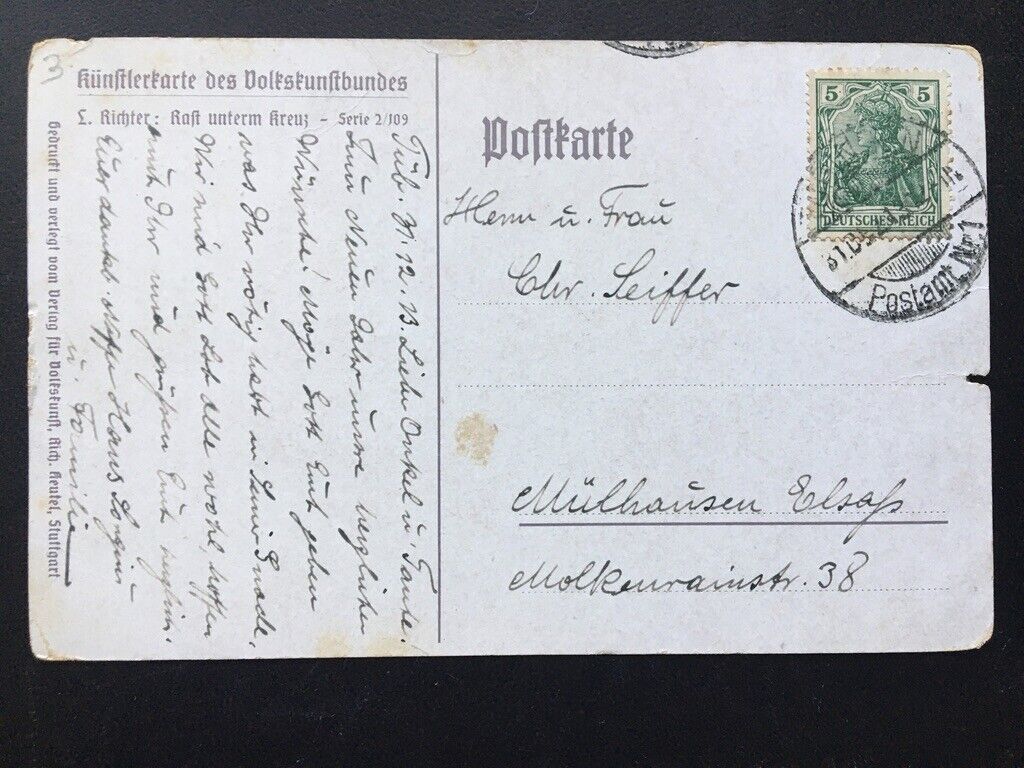 3
Künstlerkarte des Volkskunstbundes
L. Richter: Rast unterm Kreuz – Serie 2/109
Gedruckt und verlegt vom Verlag für Volkskunst, Rich. Keutel, Stuttgart
Tüb. 31. 12. 13. Liebe Onkel u. Tante!
Zum Neuen Jahr unsre herzlichen
Wünsche! Möge Gott Euch geben
was Ihr nötig habt in Seiner Gnade.
Wir sind Gott Lob alle wohl, hoffen
auch Ihr und grüßen Euch herzlich.
Euer dankb. Neffe Hans
u. Familie
Postkarte
5 5
DEUTSCHES REICH
31.
Postamt Nr. 1
Herrn u. Frau
Chr. Seiffer
Mülhausen Elsaß
Molkenrainstr. 38